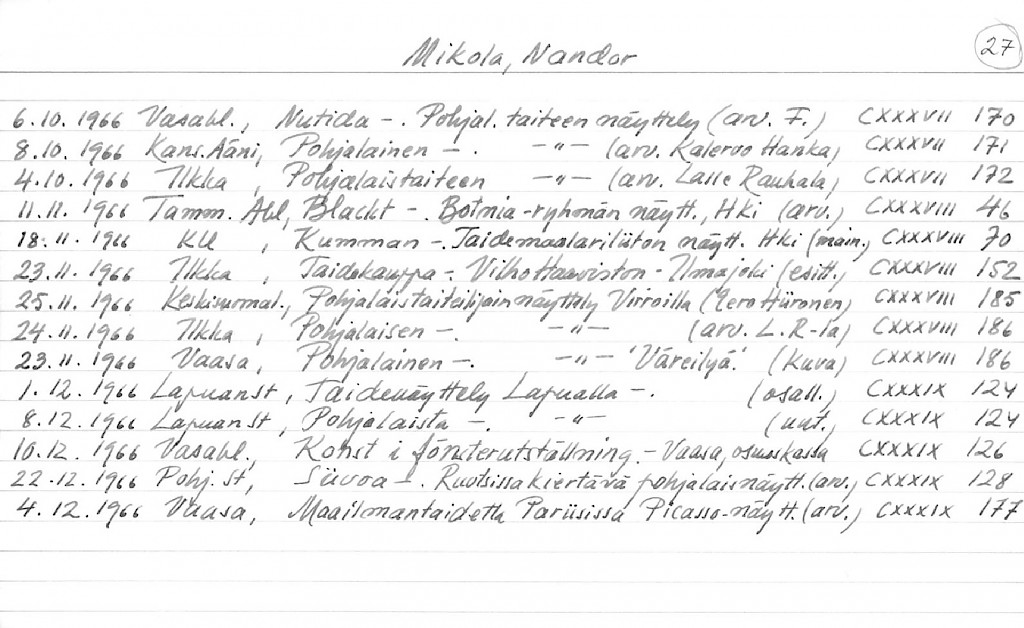 27
Mikola, Nandor
6.10.1966 Vasabl., Nutida -. Pohjal. taiteen näyttely (arv. F.) CXXXVII 170
8.10.1966 Kans.Ääni, Pohjalainen -. -"- (arv. Kalervo Hanka) CXXXVII 171
4.10.1966 Ilkka, Pohjalaistaiteen -"- (arv. Lasse Rauhala) CXXXVII 172
11.11.1966 Tamm. Abl, Blackt -. Botnia-ryhmän näytt., Hki (arv.) CXXXVIII 46
18.11.1966 KU, Kumman -. Taidemaalariliiton näytt. Hki (main.) CXXXVIII 70
23.11.1966 Ilkka, Taidekauppa - Vilho Harviston - Ilmajoki (esitt.) CXXXVIII 152
25.11.1966 Keskisuomal., Pohjalaistaiteilijain näyttely Virroilla (Eero Hiironen) CXXXVIII 185
24.11.1966 Ilkka, Pohjalaisen -. -"- (arv. L.R-la) CXXXVIII 186
23.11.1966 Vaasa, Pohjalainen -. -"- 'Väreilyä.' (kuva) CXXXVIII 186
1.12.1966 Lapuan St, Taidenäyttely Lapualla -. (osall.) CXXXIX 124
8.12.1966 Lapuan St, Pohjalaista -. -"- (uut.) CXXXIX 124
10.12.1966 Vasabl., Konst i fönsterutställning. - Vaasa, osuuskassa CXXXIX 126
22.12.1966 Pohj. St, Siivoa -. Ruotsissa kiertävä pohjalaisnäytt. (arv.) CXXXIX 128
4.12.1966 Vaasa, Maailmantaidetta Pariisissa Picasso-näytt. (arv.) CXXXIX 177